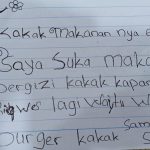 Kakak makanan nya e
Saya Suka maka
bergizi kakak kapan
wes lagi
burger kakak sam
S